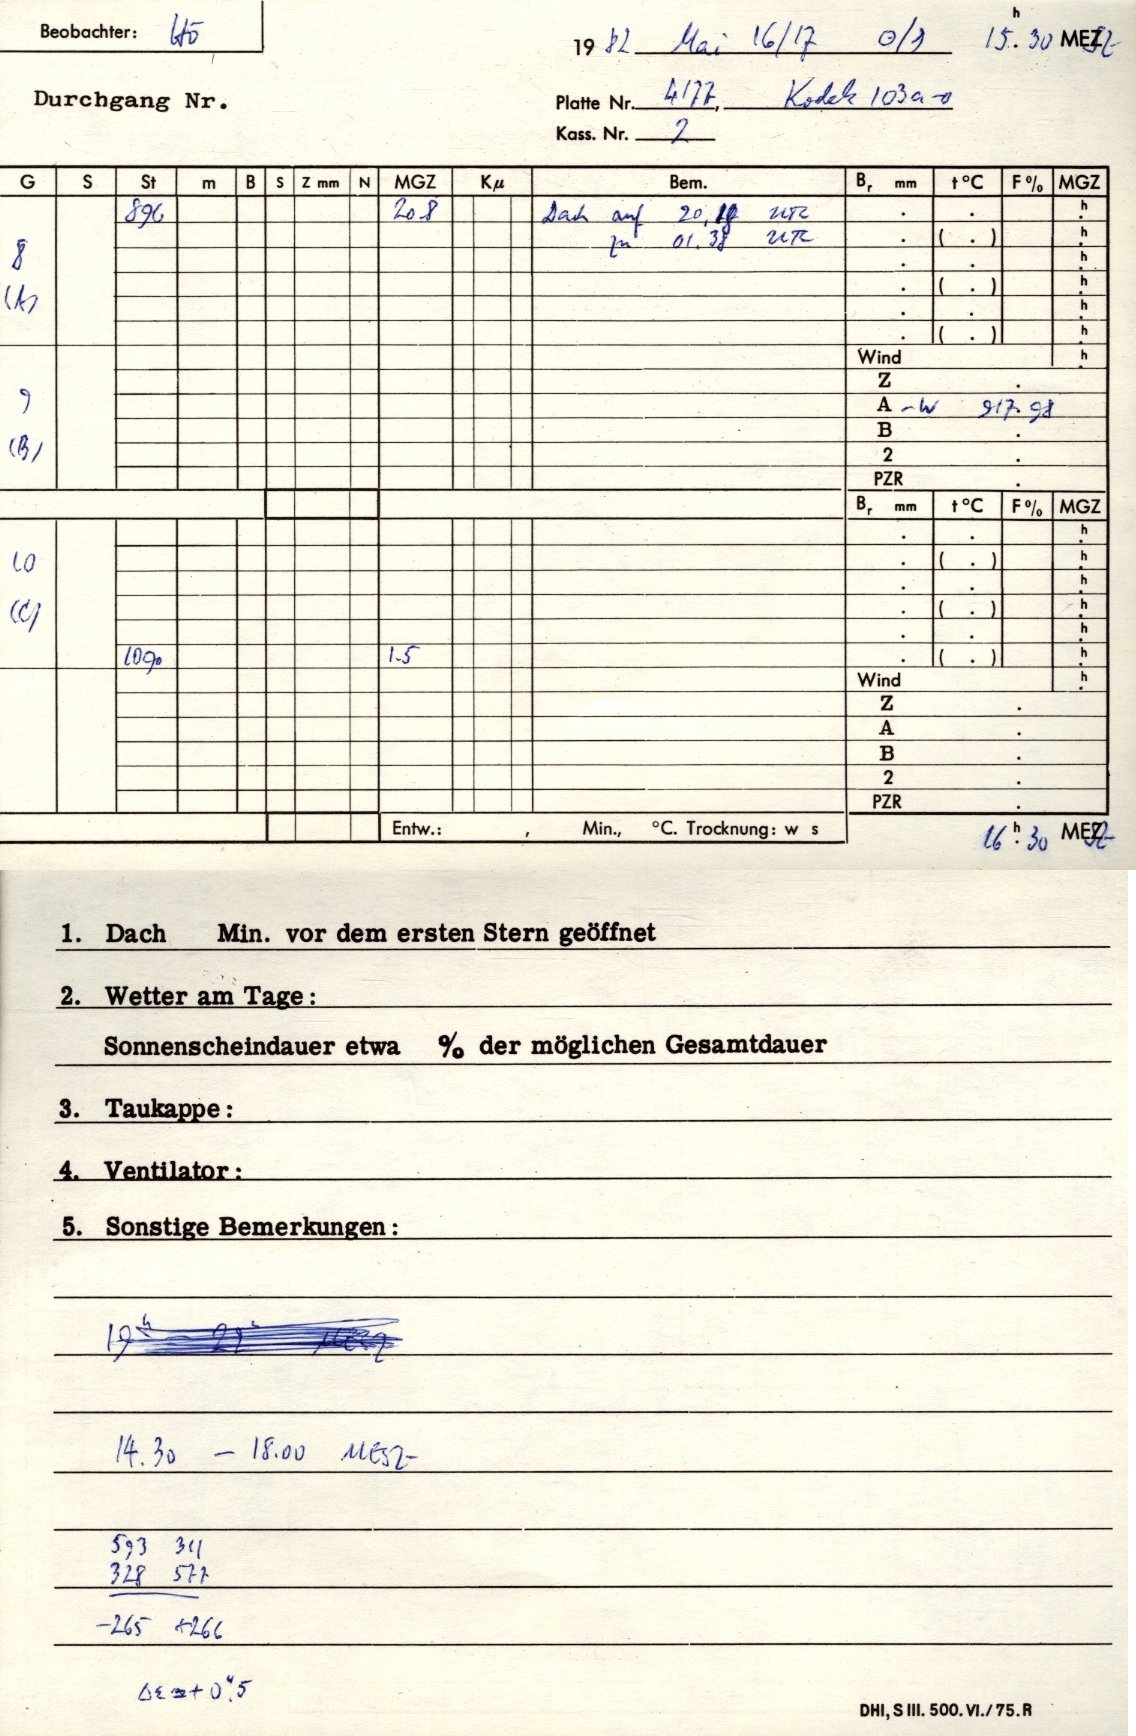 Beobachter: Hö
1982 Mai 16/17 0/1 15h.30 MESZ
Durchgang Nr.
Platte Nr. 4177, Kodak 103a-o
Kass. Nr. 2
G S St m B S Z mm N MGZ Kμ Bem. Br mm t°C F% MGZ
896 20.8 Dach auf 20.18 UTC . . h.
8 zu 01.38 UTC . ( . ) h.
. . h.
(A) . ( . ) h.
. . h.
. ( . ) h.
Wind h.
Z .
9 A -W 917.98
B .
(B) 2 .
PZR .
Br mm t°C F% MGZ
. . h.
10 . ( . ) h.
. . h.
(C) . ( . ) h.
. . h.
1090 1.5 . ( . ) h.
Wind h.
Z .
A .
B .
2 .
PZR .
Entw.: , Min., °C. Trocknung: w s
16h.30 MESZ
1. Dach Min. vor dem ersten Stern geöffnet
2. Wetter am Tage:
Sonnenscheindauer etwa % der möglichen Gesamtdauer
3. Taukappe:
4. Ventilator:
5. Sonstige Bemerkungen:
14.30 – 18.00 MESZ
593 311
328 577
-265 +266
Δε = + 0".5
DHI, S III. 500. VI./75. R